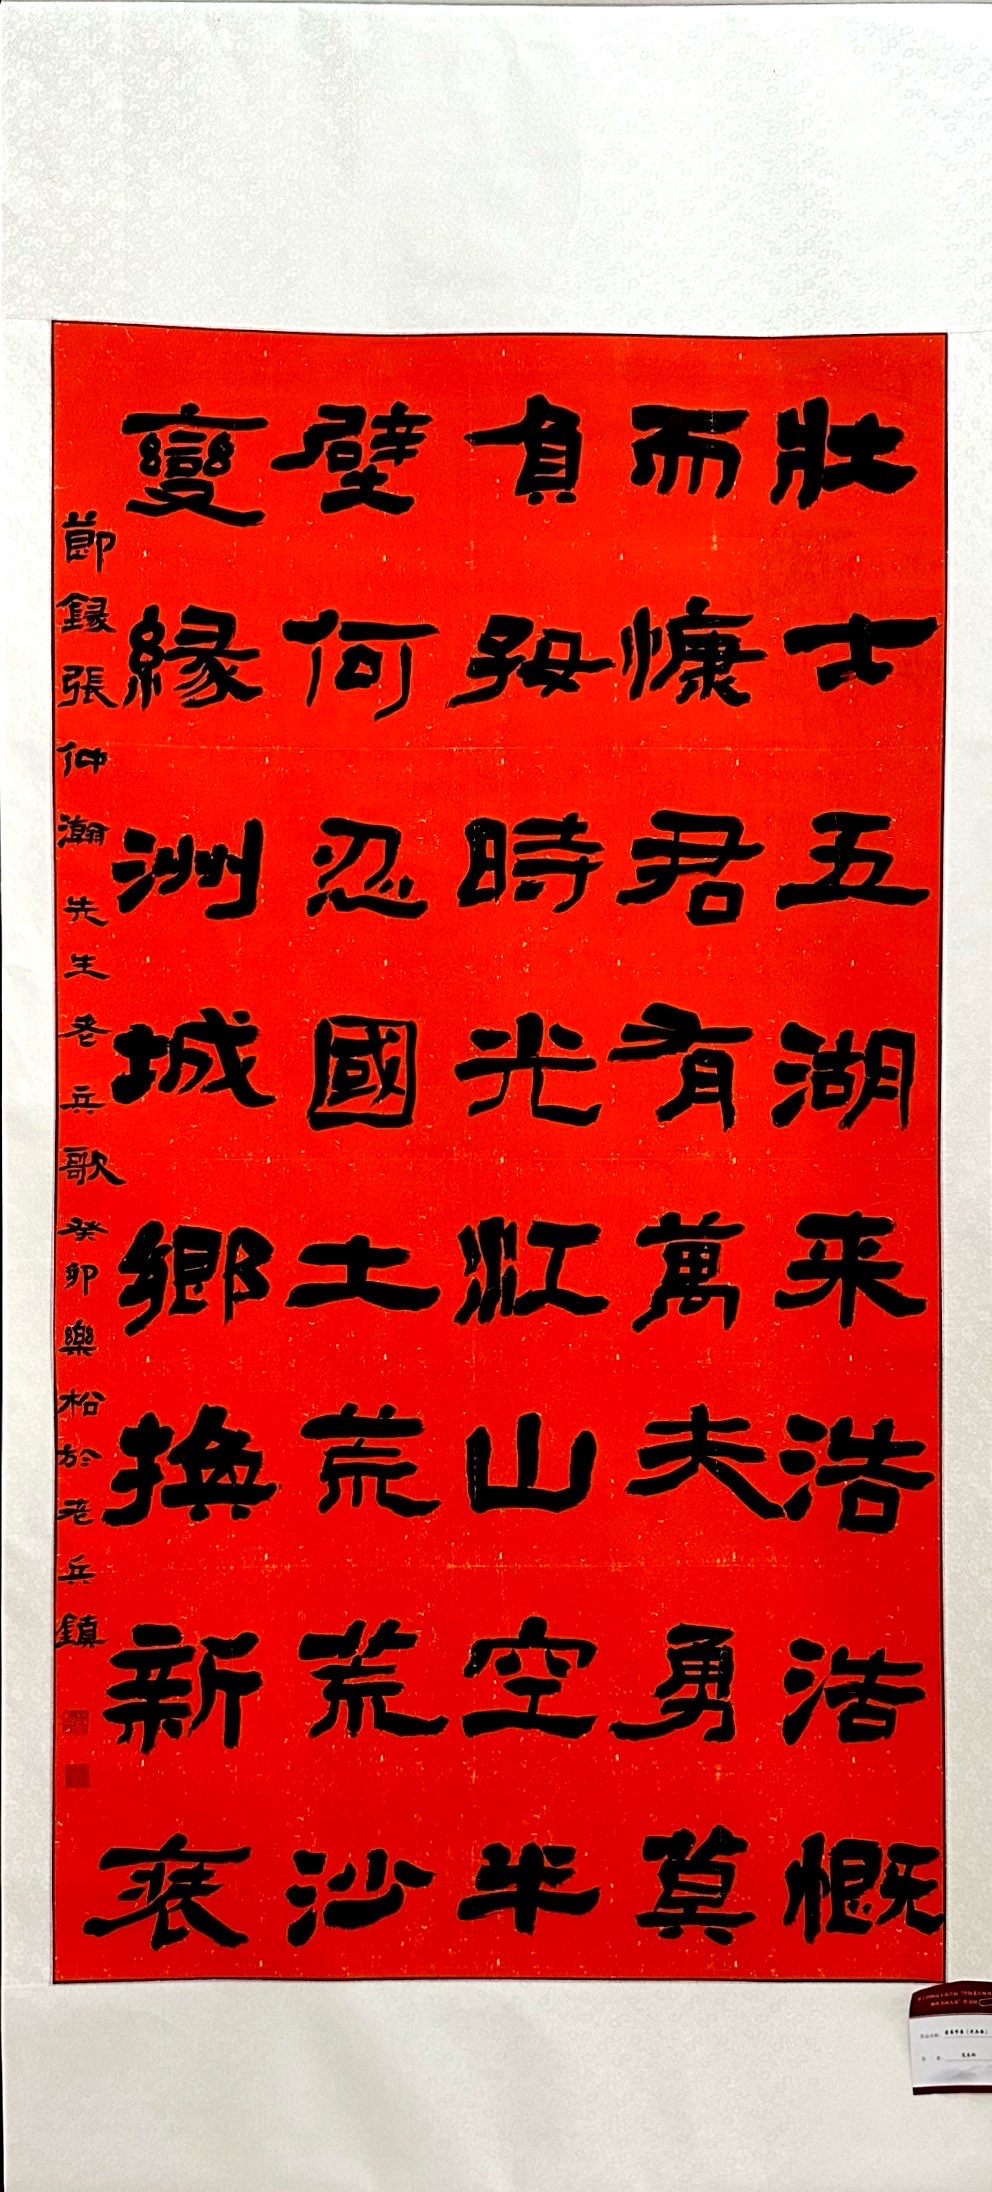 壮士五湖来浩浩慨
而慷君有萬夫勇莫
負好時光江山空半
壁何忍國土荒荒沙
變緑洲城鄉換新裝
節録張仲瀚先生老兵歌癸卯樂松於老兵鎮